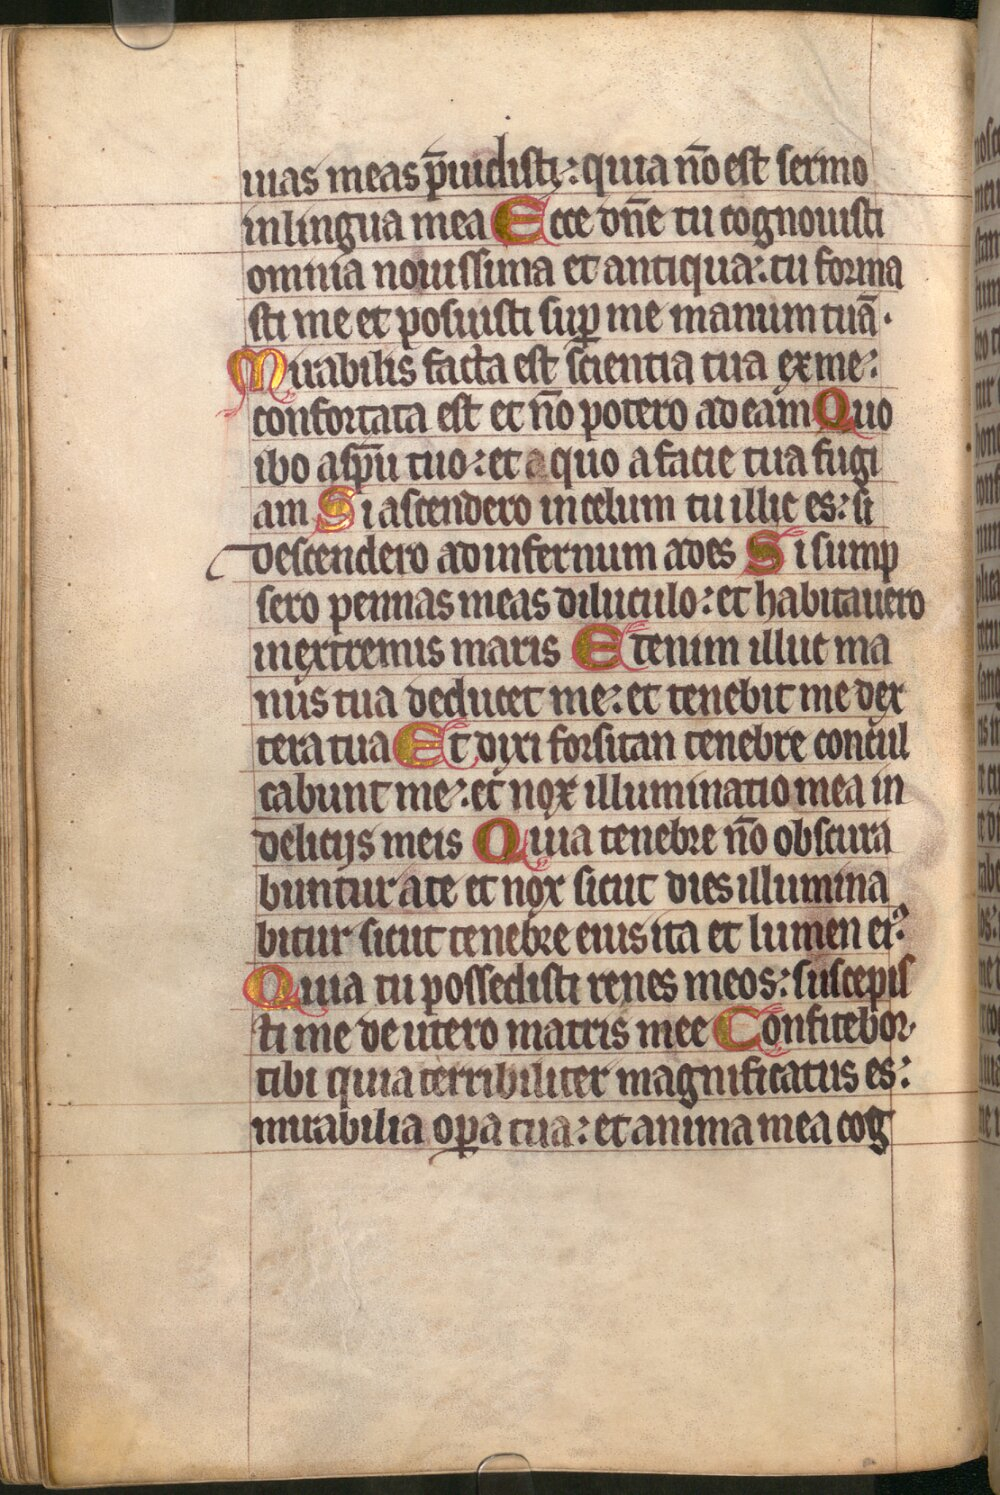 uias meas p̄uidisti: quia nō est sermo
in lingua mea Ecce dn̄e tu cognouisti
omnia nouissima et antiqua: tu forma
sti me et posuisti sup̱ me manum tuā.
Mirabilis facta est scientia tua ex me:
confortata est et nō potero ad eam Quo
ibo a sp̄u tuo: et a quo a facie tua fugi
am Si ascendero in celum tu illic es: si
descendero ad infernum ades Si sump
sero pennas meas diluculo: et habitauero
in extremis maris Etenim illuc ma
nus tua deducet me: et tenebit me dex
tera tua Et dixi forsitan tenebre concul
cabunt me: et nox illuminatio mea in
delicijs meis Quia tenebre nō obscura
buntur a te et nox sicut dies illumina
bitur sicut tenebre eius ita et lumen eiꝰ
Quia tu possedisti renes meos: suscepis
ti me de utero matris mee Confitebor
tibi quia terribiliter magnificatus es:
mirabilia op̱a tua: et anima mea cog